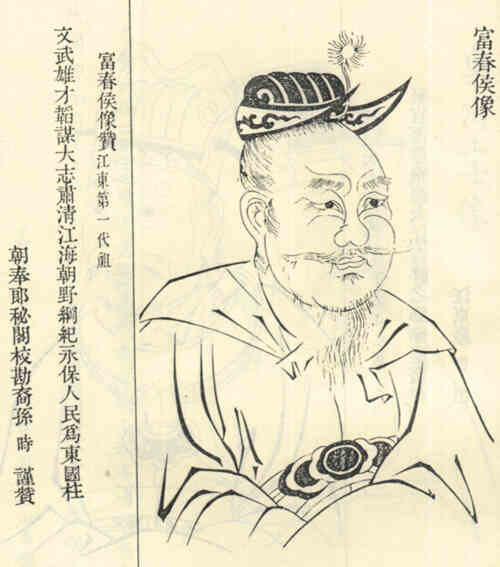 富春侯像
富春侯像贊 江東第一代祖
文武雄才韜謀大志肅清江海朝野綱紀永保人民爲東國柱
朝奉郎秘閣校勘裔孫時謹贊